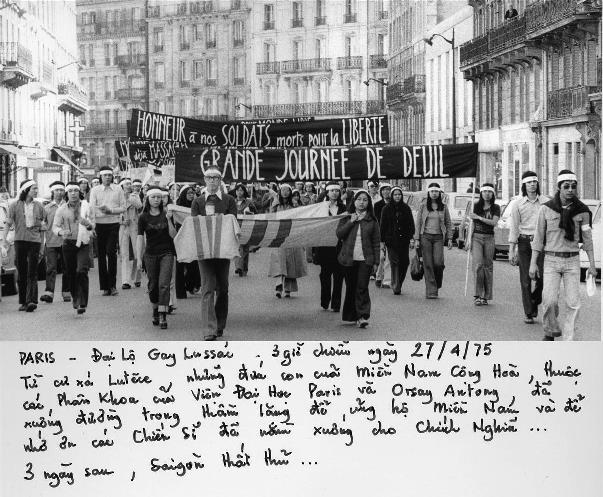 POUR UN MONDE LIBRE
HONNEUR à nos SOLDATS morts pour la LIBERTE
MASSAC
GRANDE JOURNEE DE DEUIL
PARIS - Đại Lộ Gay Lussac , 3 giờ chiều ngày 27/4/75
Từ cư xá Lutèce những đứa con của Miền Nam Cộng Hoà , thuộc
các Phân Khoa của Viện Đại Học Paris và Orsay Antony , đã
xuống đường trong thầm lặng để ủng hộ Miền Nam và để
nhớ ơn các Chiến Sĩ đã nằm xuống cho Chính Nghĩa ...
3 ngày sau , Saigon thất thủ ...